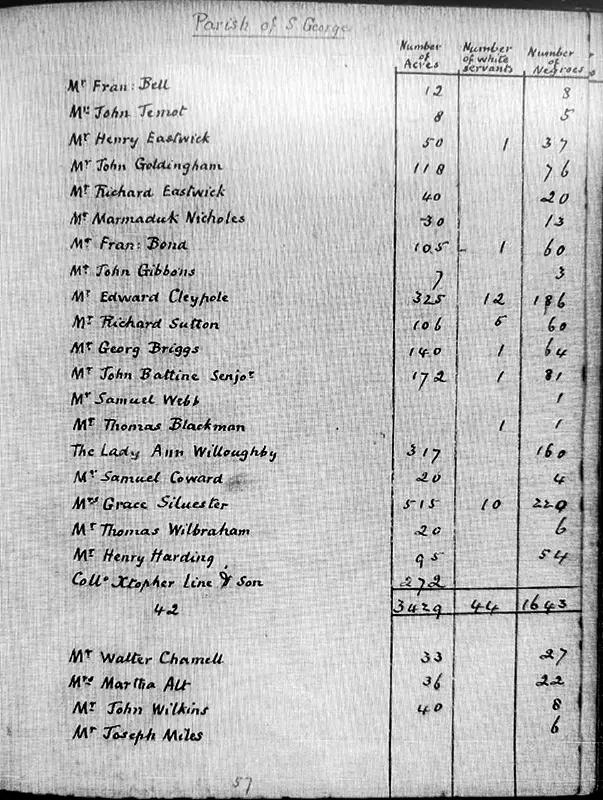 Parish of S. George
Number of Acres
Number of white servants
Number of Negroes
Mr Fran: Bell 12 8
Mr John Temot 8 5
Mr Henry Eastwick 50 1 37
Mr John Goldingham 118 76
Mr Richard Eastwick 40 20
Mr Marmaduk Nicholes 30 13
Mr Fran: Bond 105 1 60
Mr John Gibbons 7 3
Mr Edward Cleypole 325 12 186
Mr Richard Sutton 106 5 60
Mr Georg Briggs 140 1 64
Mr John Battine Senjor 172 1 81
Mr Samuel Webb 1
Mr Thomas Blackman 1 1
The Lady Ann Willoughby 317 160
Mr Samuel Coward 20 4
Mrs Grace Siluester 515 10 220
Mr Thomas Wilbraham 20 6
Mr Henry Harding 95 54
Collo Xtopher Line & Son 272
42 3429 44 1643
Mr Walter Chamell 33 27
Mrs Martha Alt 36 22
Mr John Wilkins 40 8
Mr Joseph Miles 6
57